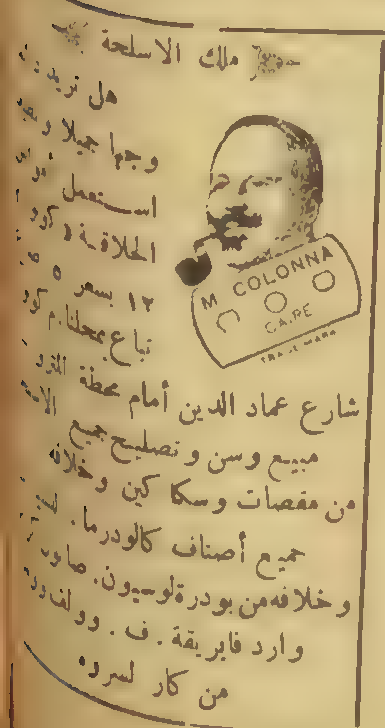 ملك الاسلحة
هل تريد
وجها جميلا
استعمل
الحلاقة
١٢ بسعر ٥
تباع بمحلنا م
M COLONNA
CAIRE
TRADE MARK
شارع عماد الدين أمام محطة
مبيع وسن وتصليح جميع
من مقصات وسكاكين وخلافه
جميع أصناف كالودرما.
وخلافه من بودرة لوسيون. صابون
وارد فابريقة. ف. وولف
من كار لسروه